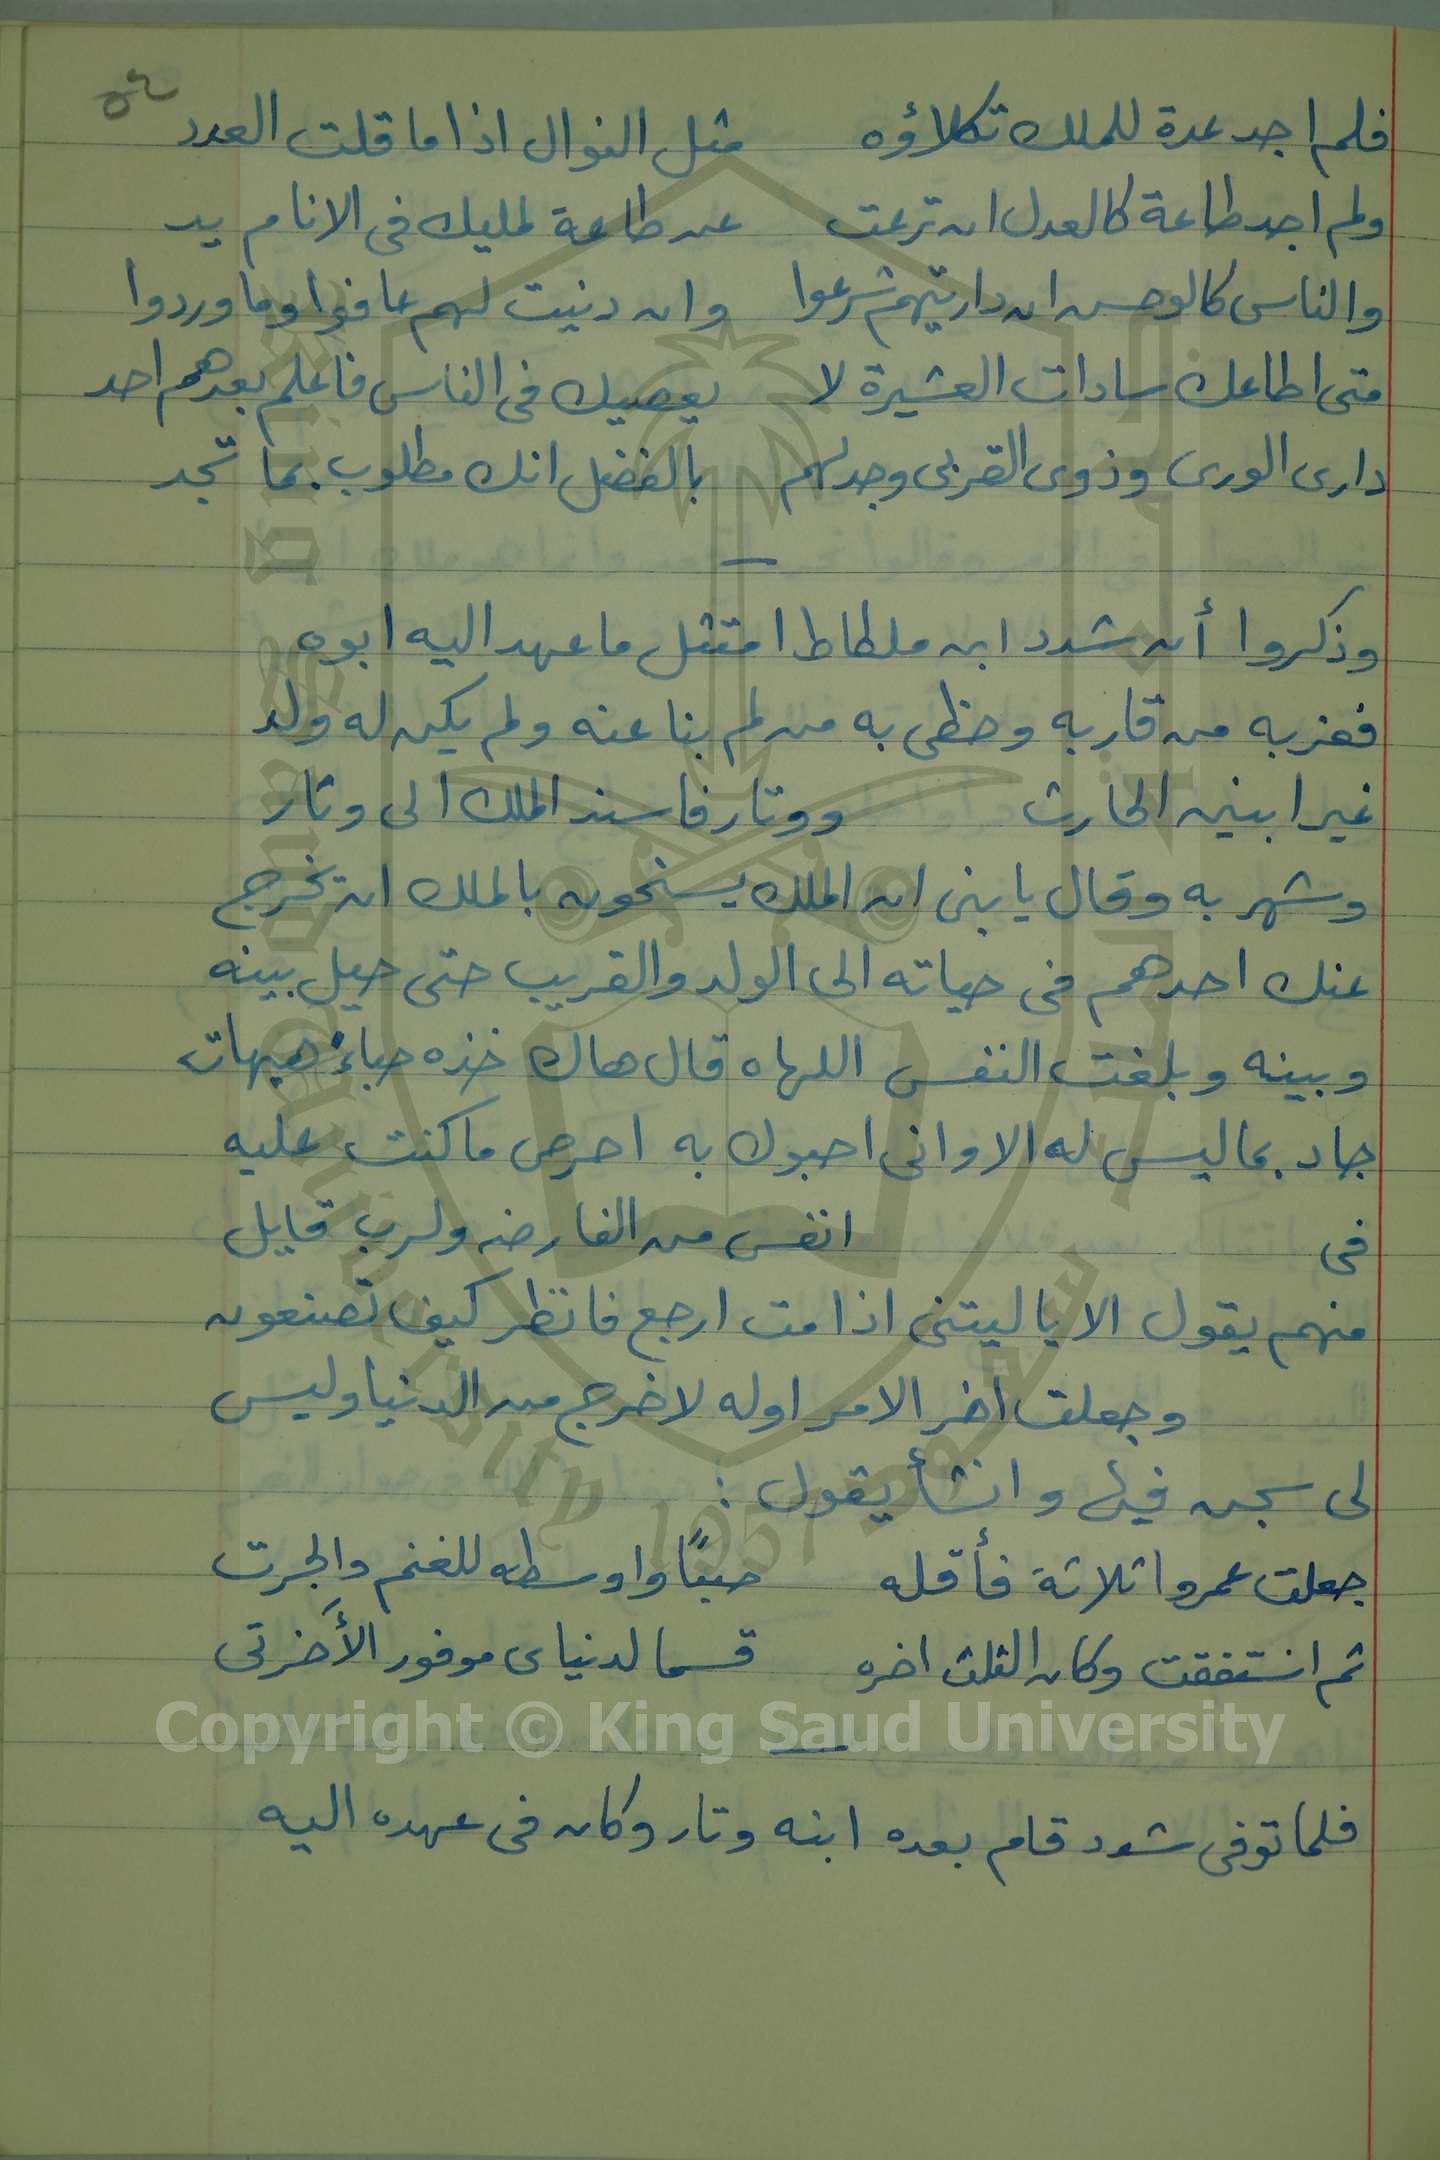 ٥٤
فلم اجد عدة للملك تكلاؤه مثل النوال اذا ما قلت العدد
ولم اجد طاعة كالعدل ان ترعت عن طاعة لمليك فى الانام يد
والناس كالوحس ان داريتهم شرعوا وان دنيت لهم عافوا وما وردوا
متى اطاعك سادات العشيرة لا يعصيك فى الناس فاعلم بعدهم احد
دارى الورى وذوى القربى وجد لهم بالفضل انك مطلوب بما تجد
وذكروا أن شدد ابن ملطاط امتثل ما عهد اليه ابوه
فعز به من قاربه وحظى به من لم ينا عنه ولم يكن له ولد
غير ابنين الحارث ووتار فاسند الملك الى وتار
وشهر به وقال يا بنى ان الملك يستحون بالملك ان تخرج
عنك احدهم فى حياته الى الولد والقريب حتى حيل بينه
وبينه وبلغت النفس اللهاه قال هاك خذه حباء هيهات
جاد بما ليس له الا وانى احبوك به احرص ما كنت عليه
فى انفس من الفارض ولرب قايل
منهم يقول الا يا ليتنى اذا مت ارجع فانظر كيف تصنعون
وجعلت اخر الامر اوله لاخرج من الدنيا وليس
لى سجن فيها وانشأ يقول :
جعلت عمروا ثلاثة فأقله صبًا واوسطه للغنم والجرت
ثم انستفقت وكان الثلث اخره قسما لدنياى موفور الأخرتى
Copyright © King Saud University
فلما توفى شدد قام بعده ابنه وتار وكان فى عهده اليه